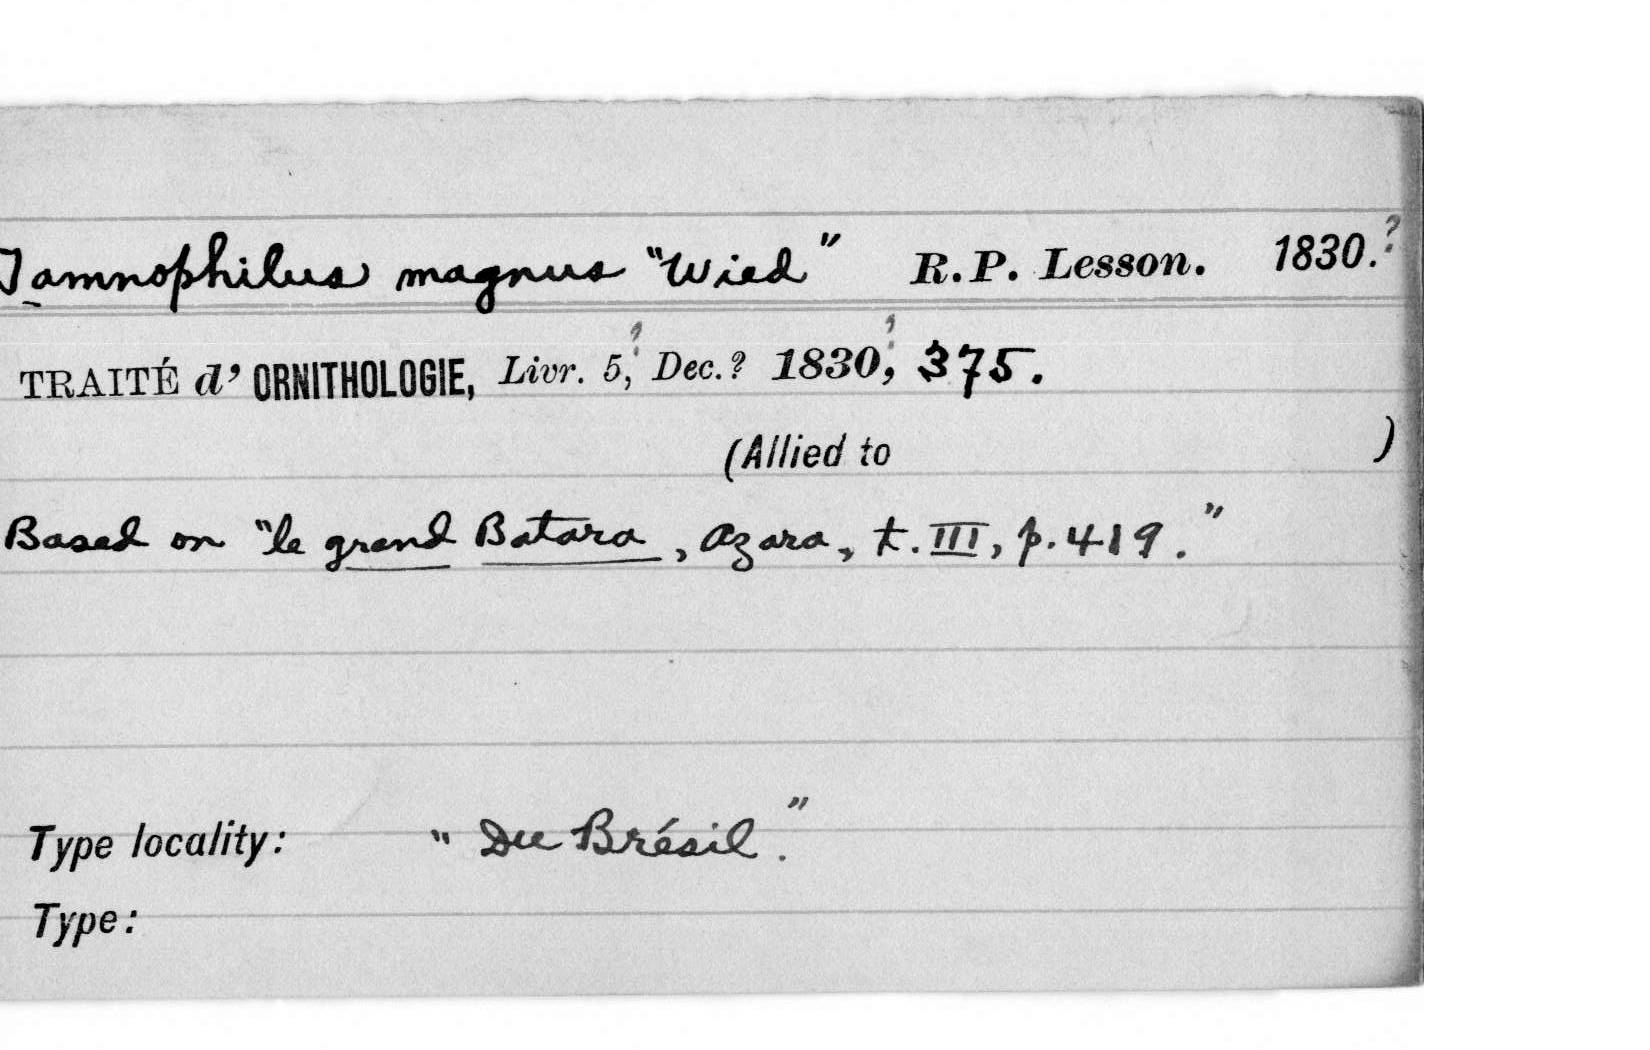 Tamnophilus magnus "Wied" R.P. Lesson. 1830.?
TRAITÉ d' ORNITHOLOGIE, Livr. 5,? Dec.? 1830,? 375.
(Allied to )
Based on "le grand Batara, Azara, t. III, p. 419."
Type locality: "Du Brésil."
Type: